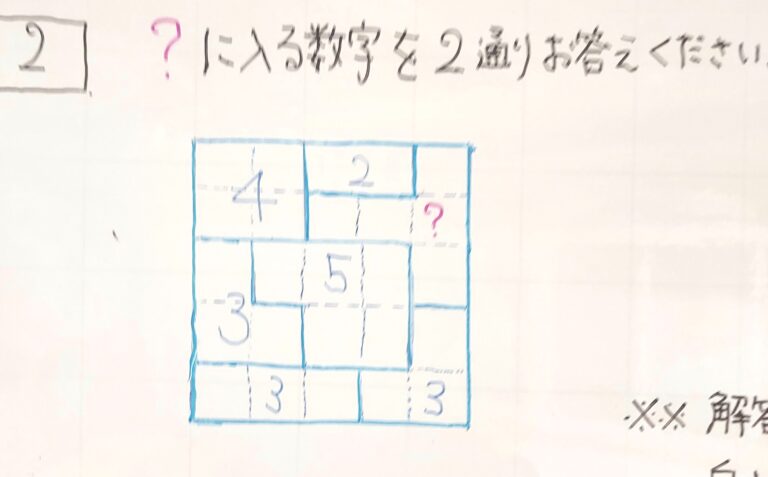 2
?に入る数字を2通りお答えください
4
2
?
5
3
3
3
※※ 解答